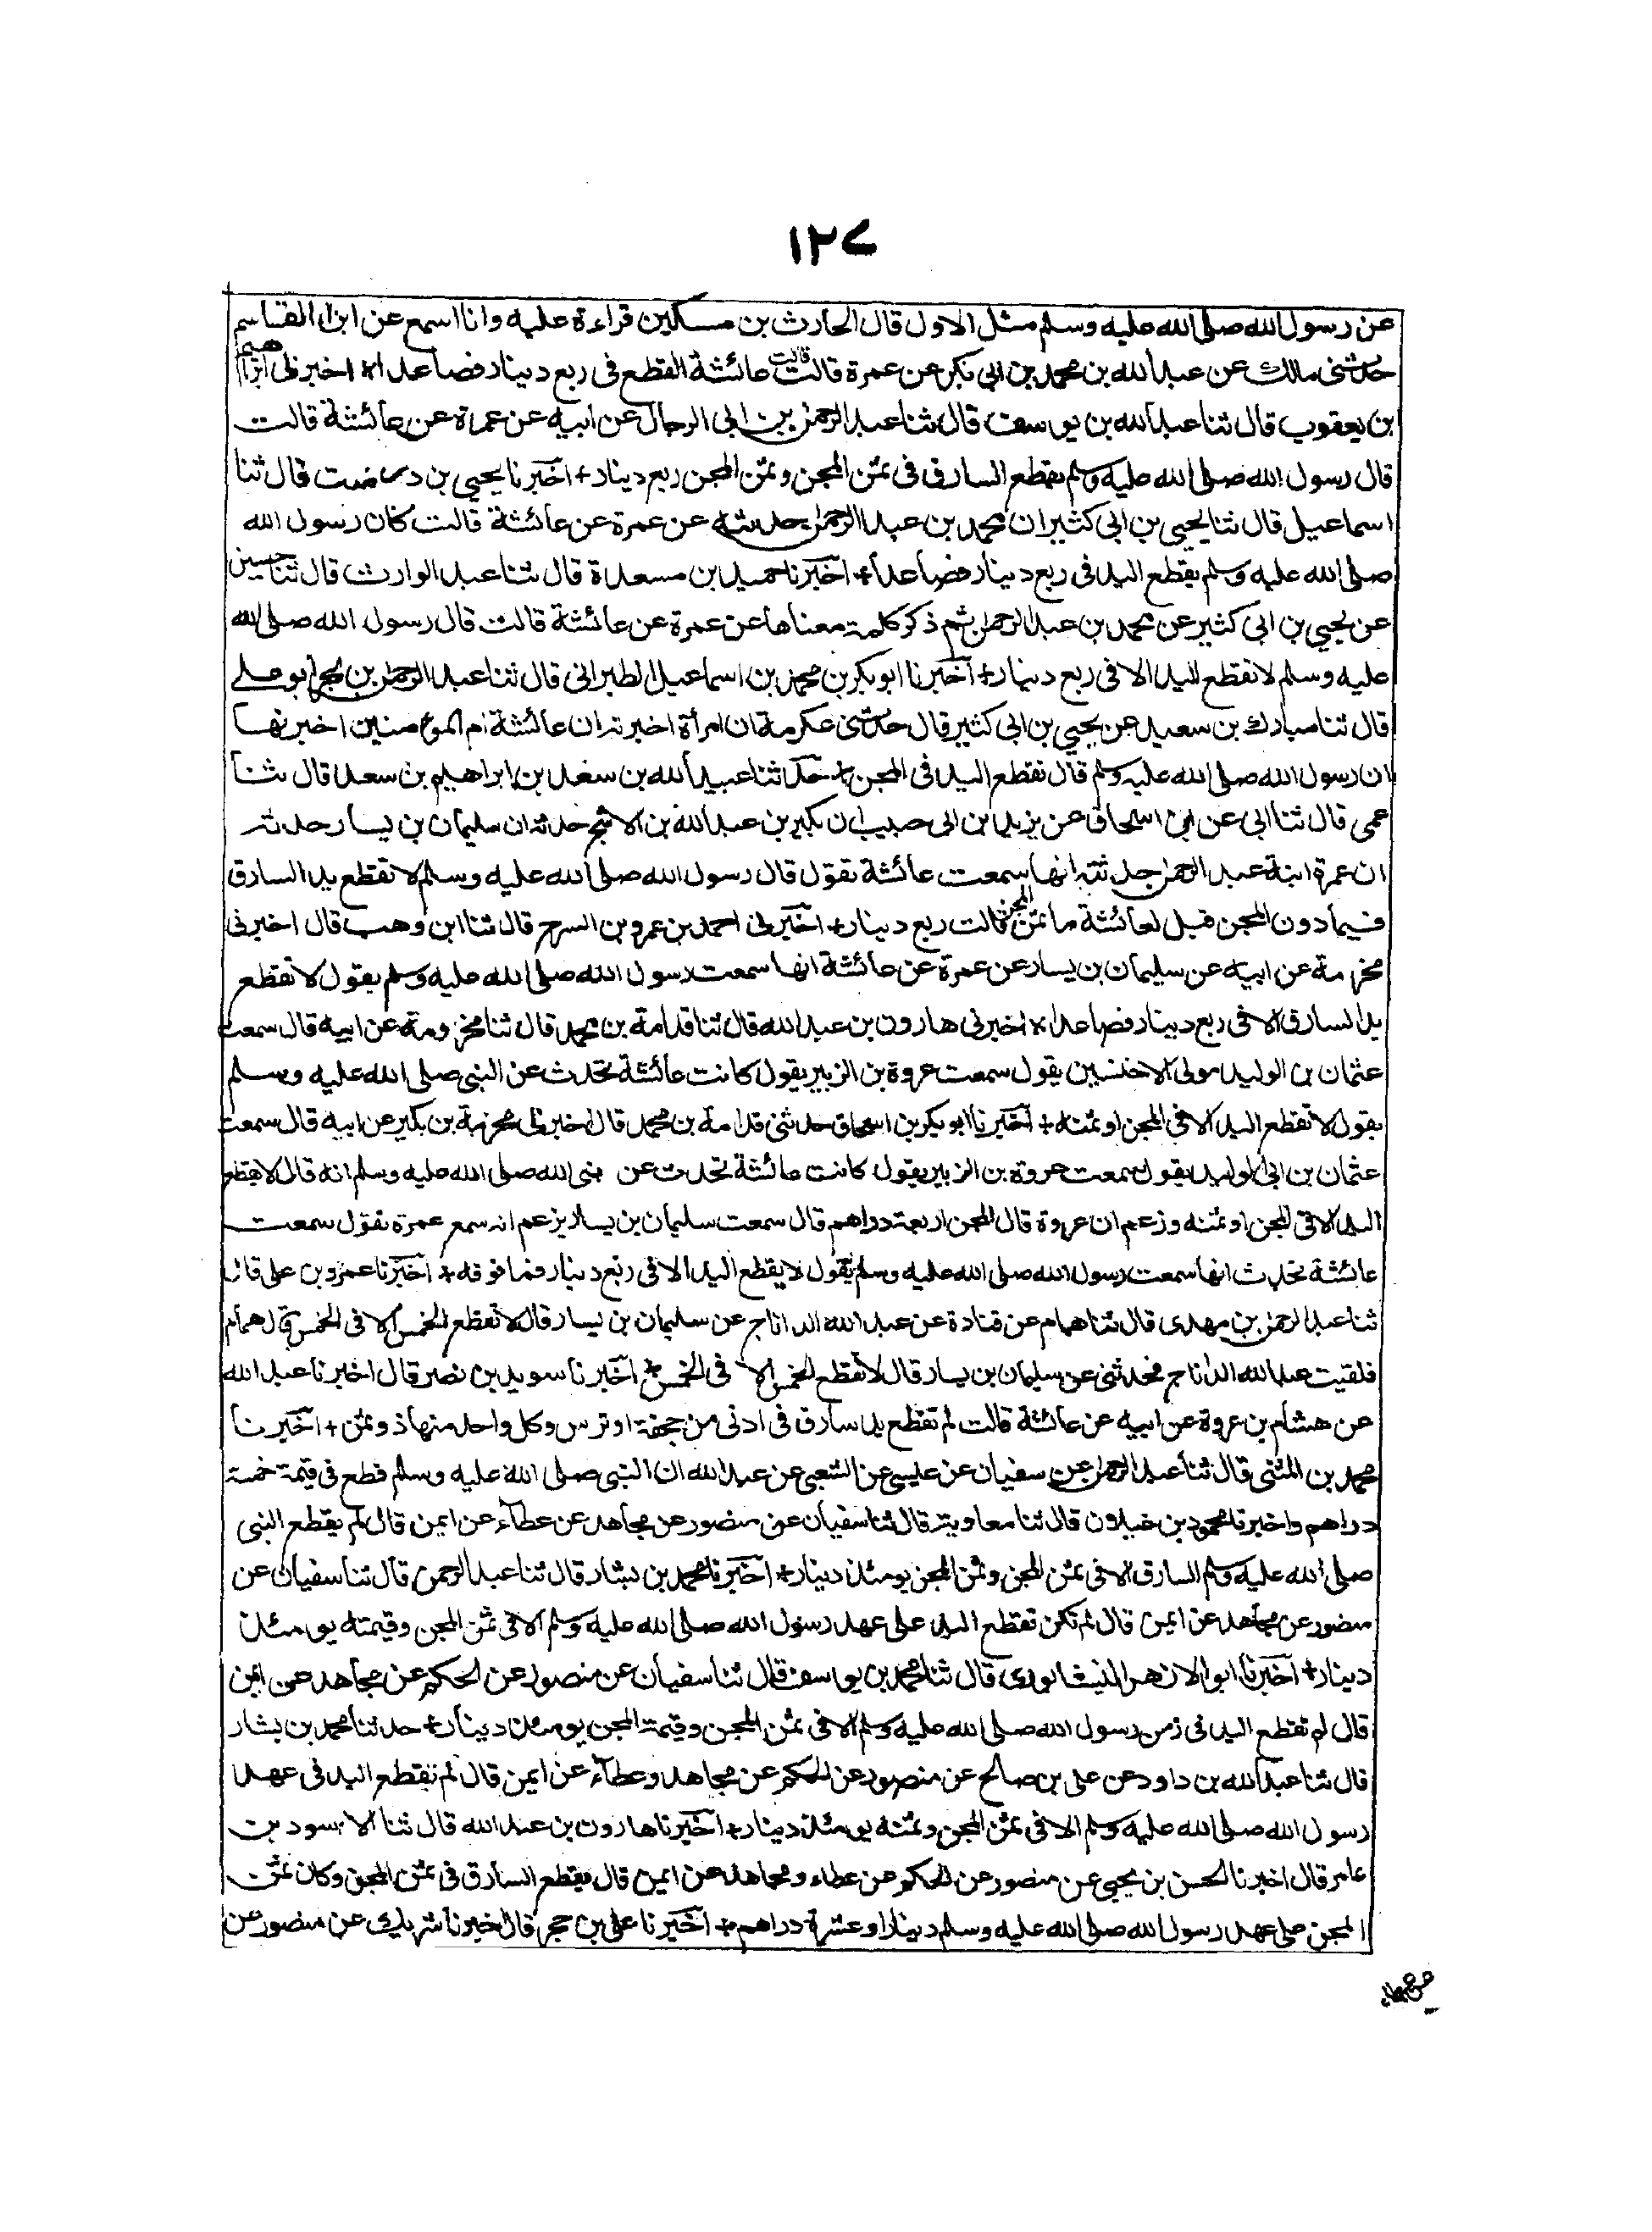 ١٢٧
عن رسول الله صلى الله عليه وسلم مثل الاول قال الحارث بن مسكين قراءة عليه وانا اسمع عن ابن القاسم
حدثنى مالك عن عبد الله بن محمد بن ابى بكر عن عمرة قالت قالت عائشة القطع فى ربع دينار فصاعدا اخبرنى ابراهيم
بن يعقوب قال ثنا عبد الله بن يوسف قال ثنا عبد الرحمن بن ابى الرجال عن ابيه عن عمرة عن عائشة قالت
قال رسول الله صلى الله عليه وسلم يقطع السارق فى ثمن المجن وثمن المجن ربع دينار + اخبرنا يحيى بن درست قال ثنا
اسماعيل قال ثنا يحيى بن ابى كثير ان محمد بن عبد الرحمن حدثه عن عمرة عن عائشة قالت كان رسول الله
صلى الله عليه وسلم يقطع اليد فى ربع دينار فصاعدا + اخبرنا حميد بن مسعدة قال ثنا عبد الوارث قال ثنا حسين
عن يحيى بن ابى كثير عن محمد بن عبد الرحمن ثم ذكر كلمة معناها عن عمرة عن عائشة قالت قال رسول الله صلى الله
عليه وسلم لا تقطع اليد الا فى ربع دينار + اخبرنا ابو بكر بن محمد بن اسماعيل الطبرانى قال ثنا عبد الرحمن بن بحر ابو على
قال ثنا مبارك بن سعيد عن يحيى بن ابى كثير قال حدثنى عكرمة ان امرأة اخبرته ان عائشة ام المومنين اخبرتها
ان رسول الله صلى الله عليه وسلم قال تقطع اليد فى المجن + حدثنا عبيد الله بن سعد بن ابراهيم بن سعد قال ثنا
عمى قال ثنا ابى عن ابن اسحاق عن يزيد بن ابى حبيب ان بكير بن عبد الله بن الاشج حدثه ان سليمان بن يسار حدثه
ان عمرة ابنة عبد الرحمن حدثته انها سمعت عائشة تقول قال رسول الله صلى الله عليه وسلم لا تقطع يد السارق
فيما دون المجن قيل لعائشة ما ثمن المجن قالت ربع دينار + اخبرنى احمد بن عمرو بن السرح قال ثنا ابن وهب قال اخبرنى
مخرمة عن ابيه عن سليمان بن يسار عن عمرة عن عائشة انها سمعت رسول الله صلى الله عليه وسلم يقول لا تقطع
يد السارق الا فى ربع دينار فصاعدا اخبرنى هارون بن عبد الله قال ثنا قدامة بن محمد قال ثنا مخرومة عن ابيه قال سمعت
عثمان بن الوليد مولى الاخنسين يقول سمعت عروة بن الزبير يقول كانت عائشة تحدث عن النبى صلى الله عليه وسلم
يقول لا تقطع اليد الا فى المجن او ثمنه + اخبرنا ابو بكر بن اسحاق حدثنى قدامة بن محمد قال اخبرنى مخرمة بن بكير عن ابيه قال سمعت
عثمان بن ابى الوليد يقول سمعت عروة بن الزبير يقول كانت عائشة تحدث عن نبى الله صلى الله عليه وسلم انه قال لا تقطع
اليد الا فى المجن او ثمنه وزعم ان عروة قال المجن اربعة دراهم قال سمعت سليمان بن يسار يزعم انه سمع عمرة تقول سمعت
عائشة تحدث انها سمعت رسول الله صلى الله عليه وسلم يقول لا يقطع اليد الا فى ربع دينار فما فوقه + اخبرنا عمرو بن على قال
ثنا عبد الرحمن بن مهدى قال ثنا همام عن قتادة عن عبد الله الداناج عن سليمان بن يسار قال لا تقطع الخمس الا فى الخمس قال همام
فلقيت عبد الله الداناج فحدثنى عن سليمان بن يسار قال لا تقطع الخمس الا فى الخمس + اخبرنا سويد بن نصر قال اخبرنا عبد الله
عن هشام بن عروة عن ابيه عن عائشة قالت لم تقطع يد سارق فى ادنى من حجفة او ترس وكل واحد منها ذو ثمن + اخبرنا
محمد بن المثنى قال ثنا عبد الرحمن عن سفيان عن عليسى عن الشعبى عن عبد الله ان النبى صلى الله عليه وسلم قطع فى قيمة خمسة
دراهم واخبرنا محمود بن غيلان قال ثنا معاوية قال ثنا سفيان عن منصور عن مجاهد عن عطاء عن ايمن قال لم يقطع النبى
صلى الله عليه وسلم السارق الا فى ثمن المجن وثمن المجن يومئذ دينار + اخبرنا محمد بن بشار قال ثنا عبد الرحمن قال ثنا سفيان عن
منصور عن مجاهد عن ايمن قال لم تكن تقطع اليد على عهد رسول الله صلى الله عليه وسلم الا فى ثمن المجن وقيمته يومئذ
دينار + اخبرنا ابو الازهر النيسابورى قال ثنا محمد بن يوسف قال ثنا سفيان عن منصور عن الحكم عن مجاهد عن ايمن
قال لم تقطع اليد فى زمن رسول الله صلى الله عليه وسلم الا فى ثمن المجن وقيمة المجن يومئذ دينار + حدثنا محمد بن بشار
قال ثنا عبد الله بن داود عن على بن صالح عن منصور عن الحكم عن مجاهد وعطاء عن ايمن قال لم تقطع اليد فى عهد
رسول الله صلى الله عليه وسلم الا فى ثمن المجن وثمنه يومئذ دينار + اخبرنا هارون بن عبد الله قال ثنا الاسود بن
عامر قال اخبرنا الحسن بن يحيى عن منصور عن الحكم عن عطاء ومجاهد عن ايمن قال يقطع السارق فى ثمن المجن وكان ثمن
المجن على عهد رسول الله صلى الله عليه وسلم دينارا او عشرة دراهم + اخبرنا على بن حجر قال اخبرنا شريك عن منصور عن